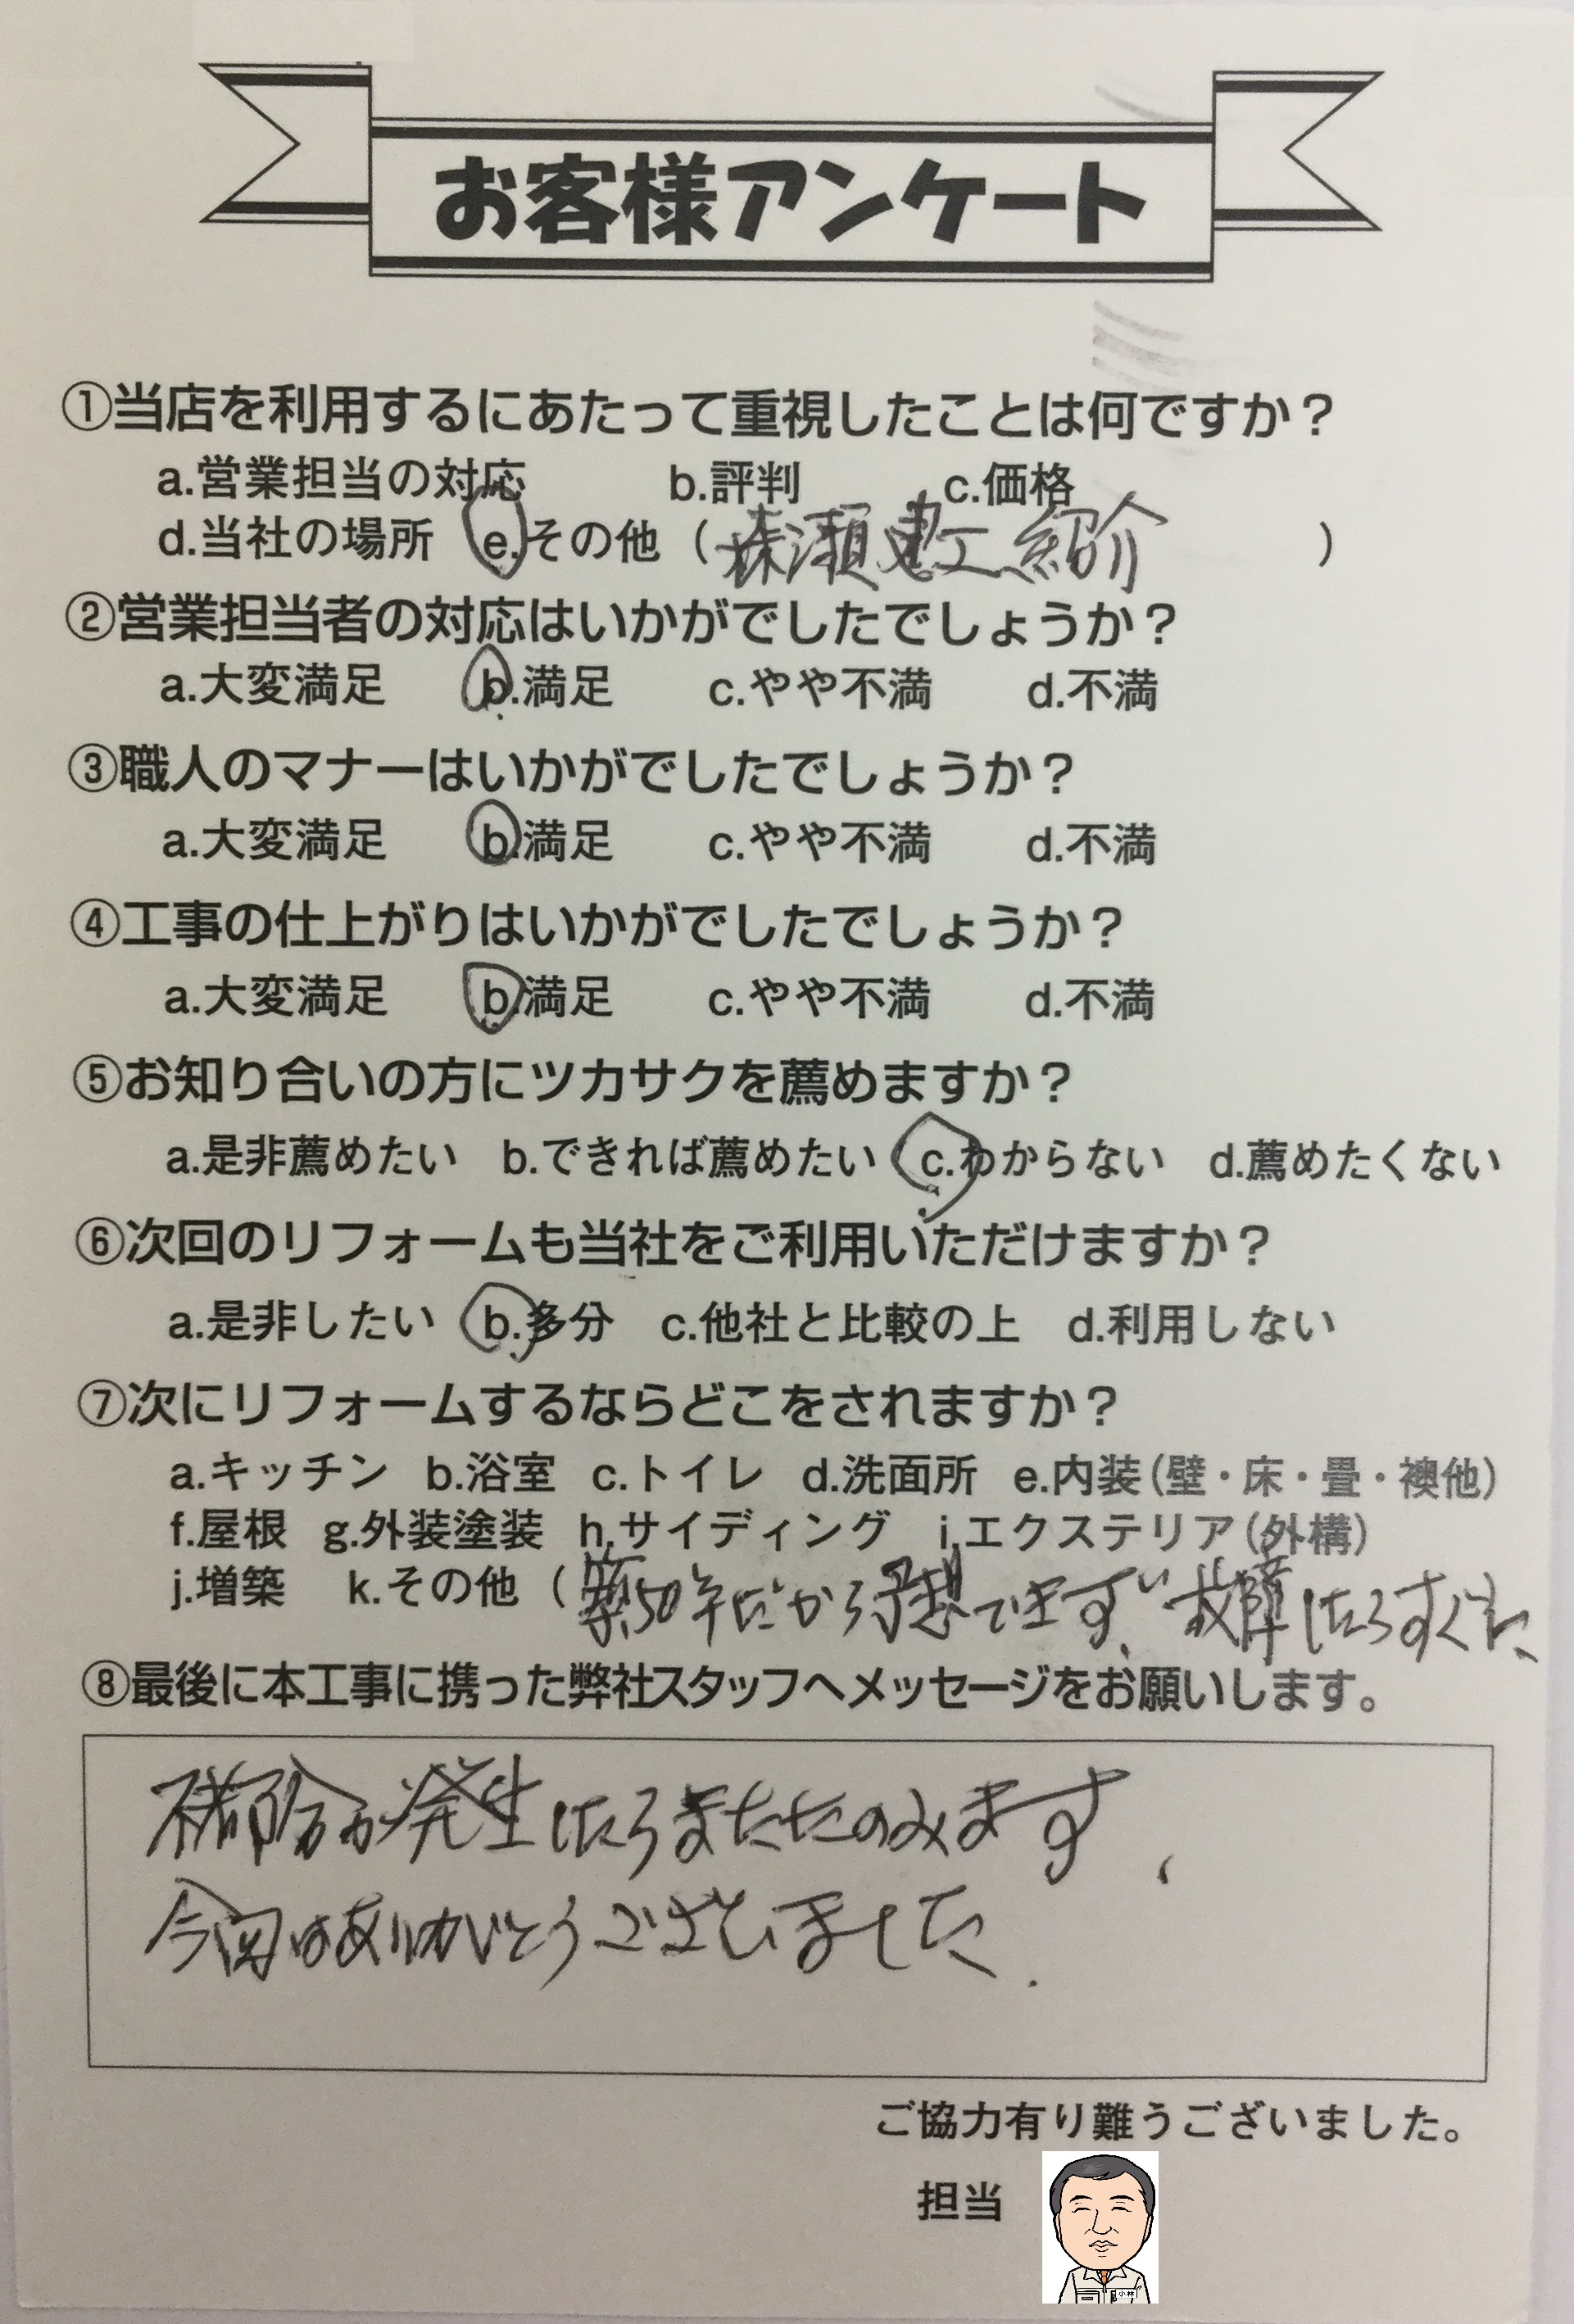 お客様アンケート
①当店を利用するにあたって重視したことは何ですか？
a.営業担当の対応 b.評判 c.価格
d.当社の場所 e.その他（瀬建工紹介）
②営業担当者の対応はいかがでしたでしょうか？
a.大変満足 b.満足 c.やや不満 d.不満
③職人のマナーはいかがでしたでしょうか？
a.大変満足 b.満足 c.やや不満 d.不満
④工事の仕上がりはいかがでしたでしょうか？
a.大変満足 b.満足 c.やや不満 d.不満
⑤お知り合いの方にツカサクを薦めますか？
a.是非薦めたい b.できれば薦めたい c.わからない d.薦めたくない
⑥次回のリフォームも当社をご利用いただけますか？
a.是非したい b.多分 c.他社と比較の上 d.利用しない
⑦次にリフォームするならどこをされますか？
a.キッチン b.浴室 c.トイレ d.洗面所 e.内装（壁・床・畳・襖他）
f.屋根 g.外装塗装 h.サイディング i.エクステリア（外構）
j.増築 k.その他（築50年だから予想できず、故障したらすぐに、
⑧最後に本工事に携った弊社スタッフへメッセージをお願いします。
が発生したらまたたのみます、
今回はありがとうございました.
ご協力有り難うございました。
担当
小林